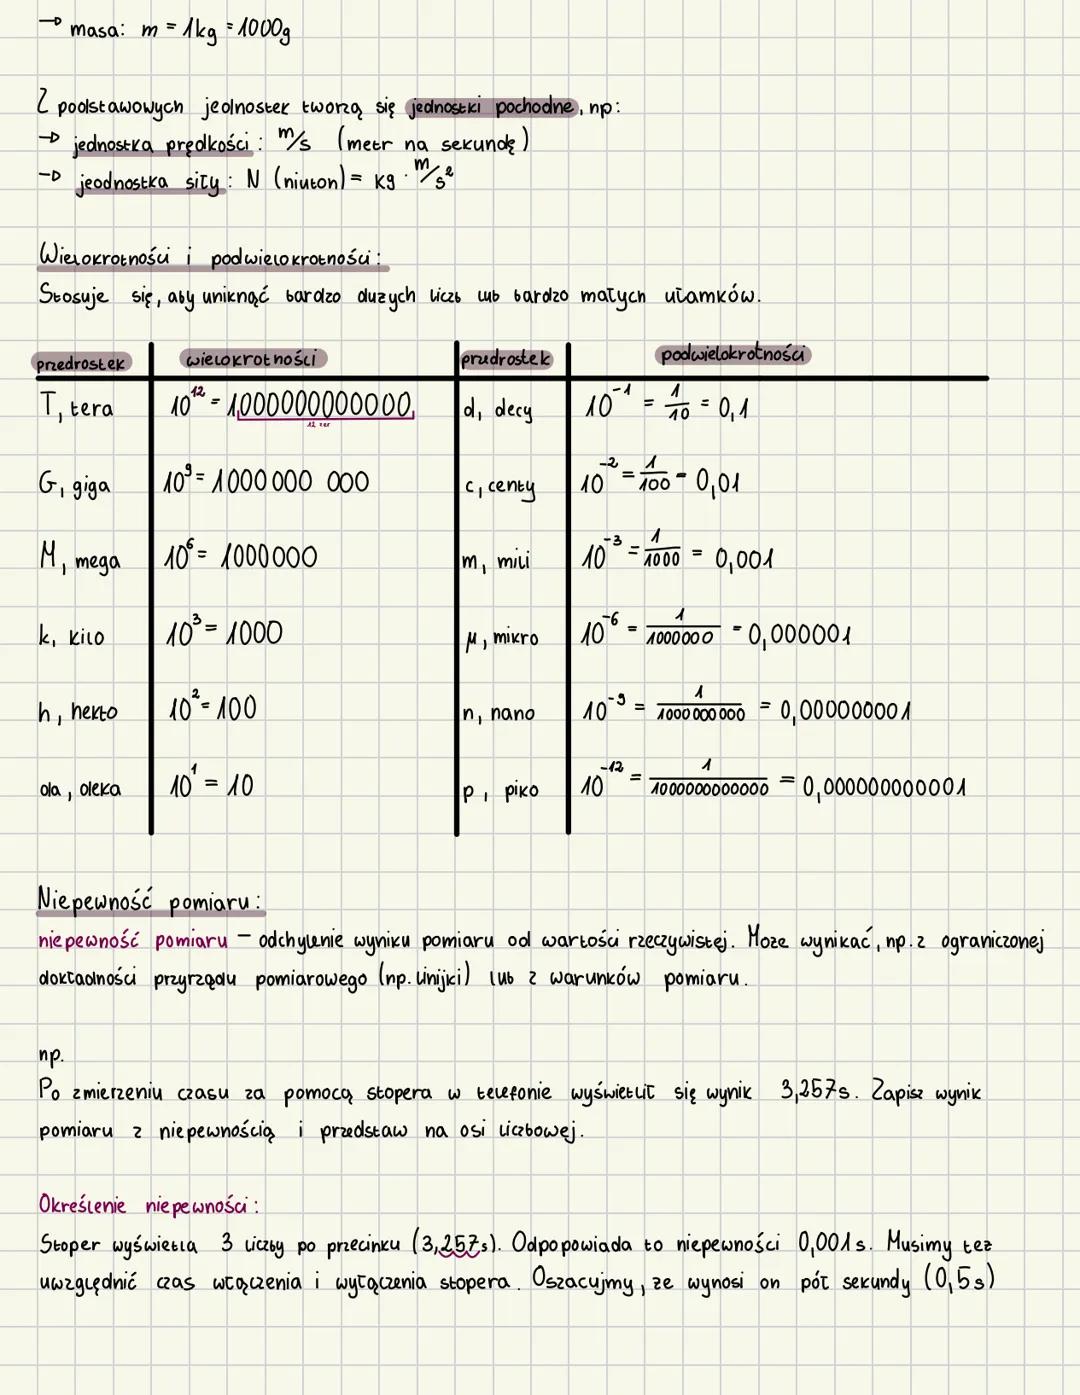 → masa: m = 1kg = 1000g
Z podstawowych jednostek tworzą się jednostki pochodne, np:
→ jednostka prędkości: m/s (metr na sekundę)
→ jeodnostka siły: N (niuton) = kg · m/s²
Wielokrotności i podwielokrotności:
Stosuje się, aby uniknąć bardzo dużych liczb lub bardzo małych ułamków.
przedrostek wielokrotności przedrostek podwielokrotności
T, tera 10¹² = 1000000000000 d, decy 10⁻¹ = 1/10 = 0,1
12 zer
G, giga 10⁹ = 1000000 000 c, centy 10⁻² = 1/100 = 0,01
M, mega 10⁶ = 1000000 m, mili 10⁻³ = 1/1000 = 0,001
k, kilo 10³ = 1000 μ, mikro 10⁻⁶ = 1/1000000 = 0,000001
h, hekto 10² = 100 n, nano 10⁻⁹ = 1/1000 000 000 = 0,000000001
da, deka 10¹ = 10 p, piko 10⁻¹² = 1/1000000000000 = 0,000000000001
Niepewność pomiaru:
niepewność pomiaru – odchylenie wyniku pomiaru od wartości rzeczywistej. Może wynikać, np. z ograniczonej
dokładności przyrządu pomiarowego (np. linijki) lub z warunków pomiaru.
np.
Po zmierzeniu czasu za pomocą stopera w telefonie wyświetlił się wynik 3,257s. Zapisz wynik
pomiaru z niepewnością i przedstaw na osi liczbowej.
Określenie niepewności:
Stoper wyświetla 3 liczby po przecinku (3,257s). Odpopowiada to niepewności 0,001 s. Musimy też
uwzględnić czas włączenia i wyłączenia stopera. Oszacujmy, że wynosi on pół sekundy (0,5s)